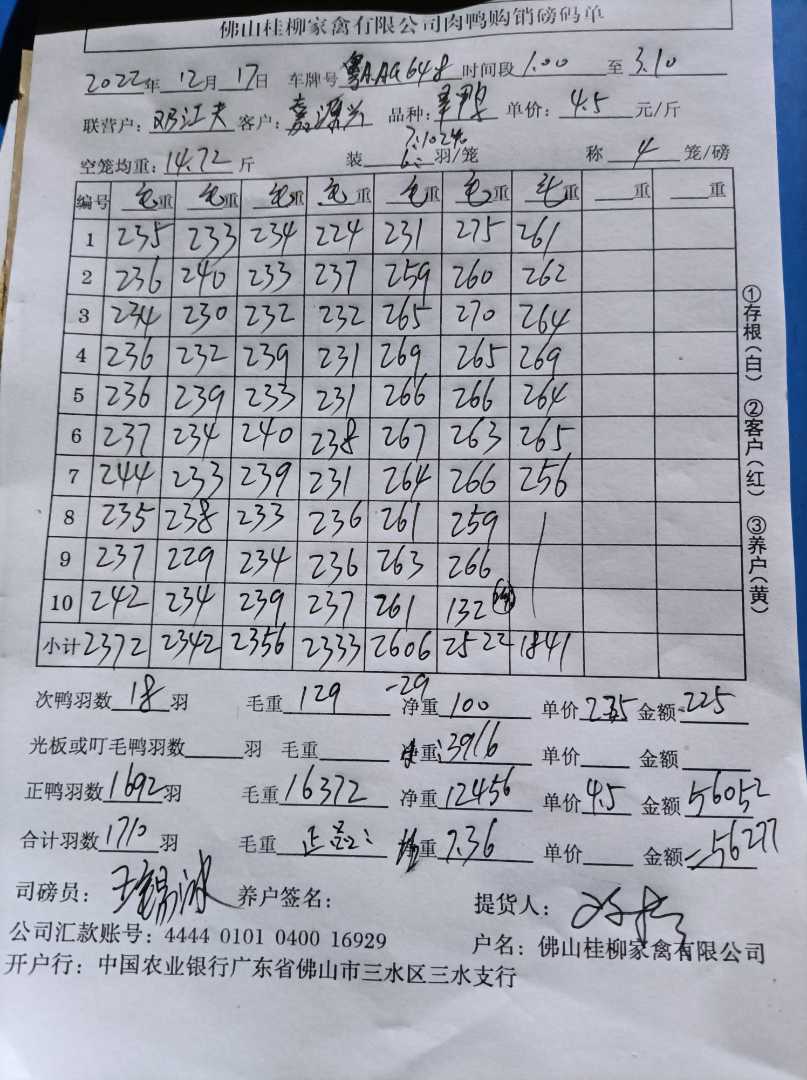 佛山桂柳家禽有限公司肉鸭购销磅码单
2022年 12月 17日 车牌号 粤A.AG648 时间段 1.00 至 3.10
联营户: 邓江夫 客户: 嘉源兴 品种: 单价: 4.5 元/斤
空笼均重: 14.72 斤 装 6: 羽/笼 称 4 笼/磅
编号 毛重 毛重 毛重 毛重 毛重 毛重 毛重 重 重
1 235 233 234 224 231 275 261
2 236 240 233 237 259 260 262
3 234 230 232 232 265 270 264
4 236 232 239 231 269 265 269
5 236 239 233 231 266 266 264
6 237 234 240 238 267 263 265
7 244 233 239 231 264 266 256
8 235 238 233 236 261 259
9 237 229 234 236 263 266
10 242 234 239 237 261 132
小计 2372 2342 2356 2333 2606 2522 1841
①存根(白) ②客户(红) ③养户(黄)
次鸭羽数 18 羽 毛重 129 -29 净重 100 单价 金额 225
光板或叮毛鸭羽数 羽 毛重 重 3916 单价 金额
正鸭羽数 1692 羽 毛重 16372 净重 12456 单价 4.5 金额 56052
合计羽数 1710 羽 毛重 重 7.36 单价 金额 56277
司磅员: 养户签名: 提货人:
公司汇款账号: 4444 0101 0400 16929 户名: 佛山桂柳家禽有限公司
开户行: 中国农业银行广东省佛山市三水区三水支行